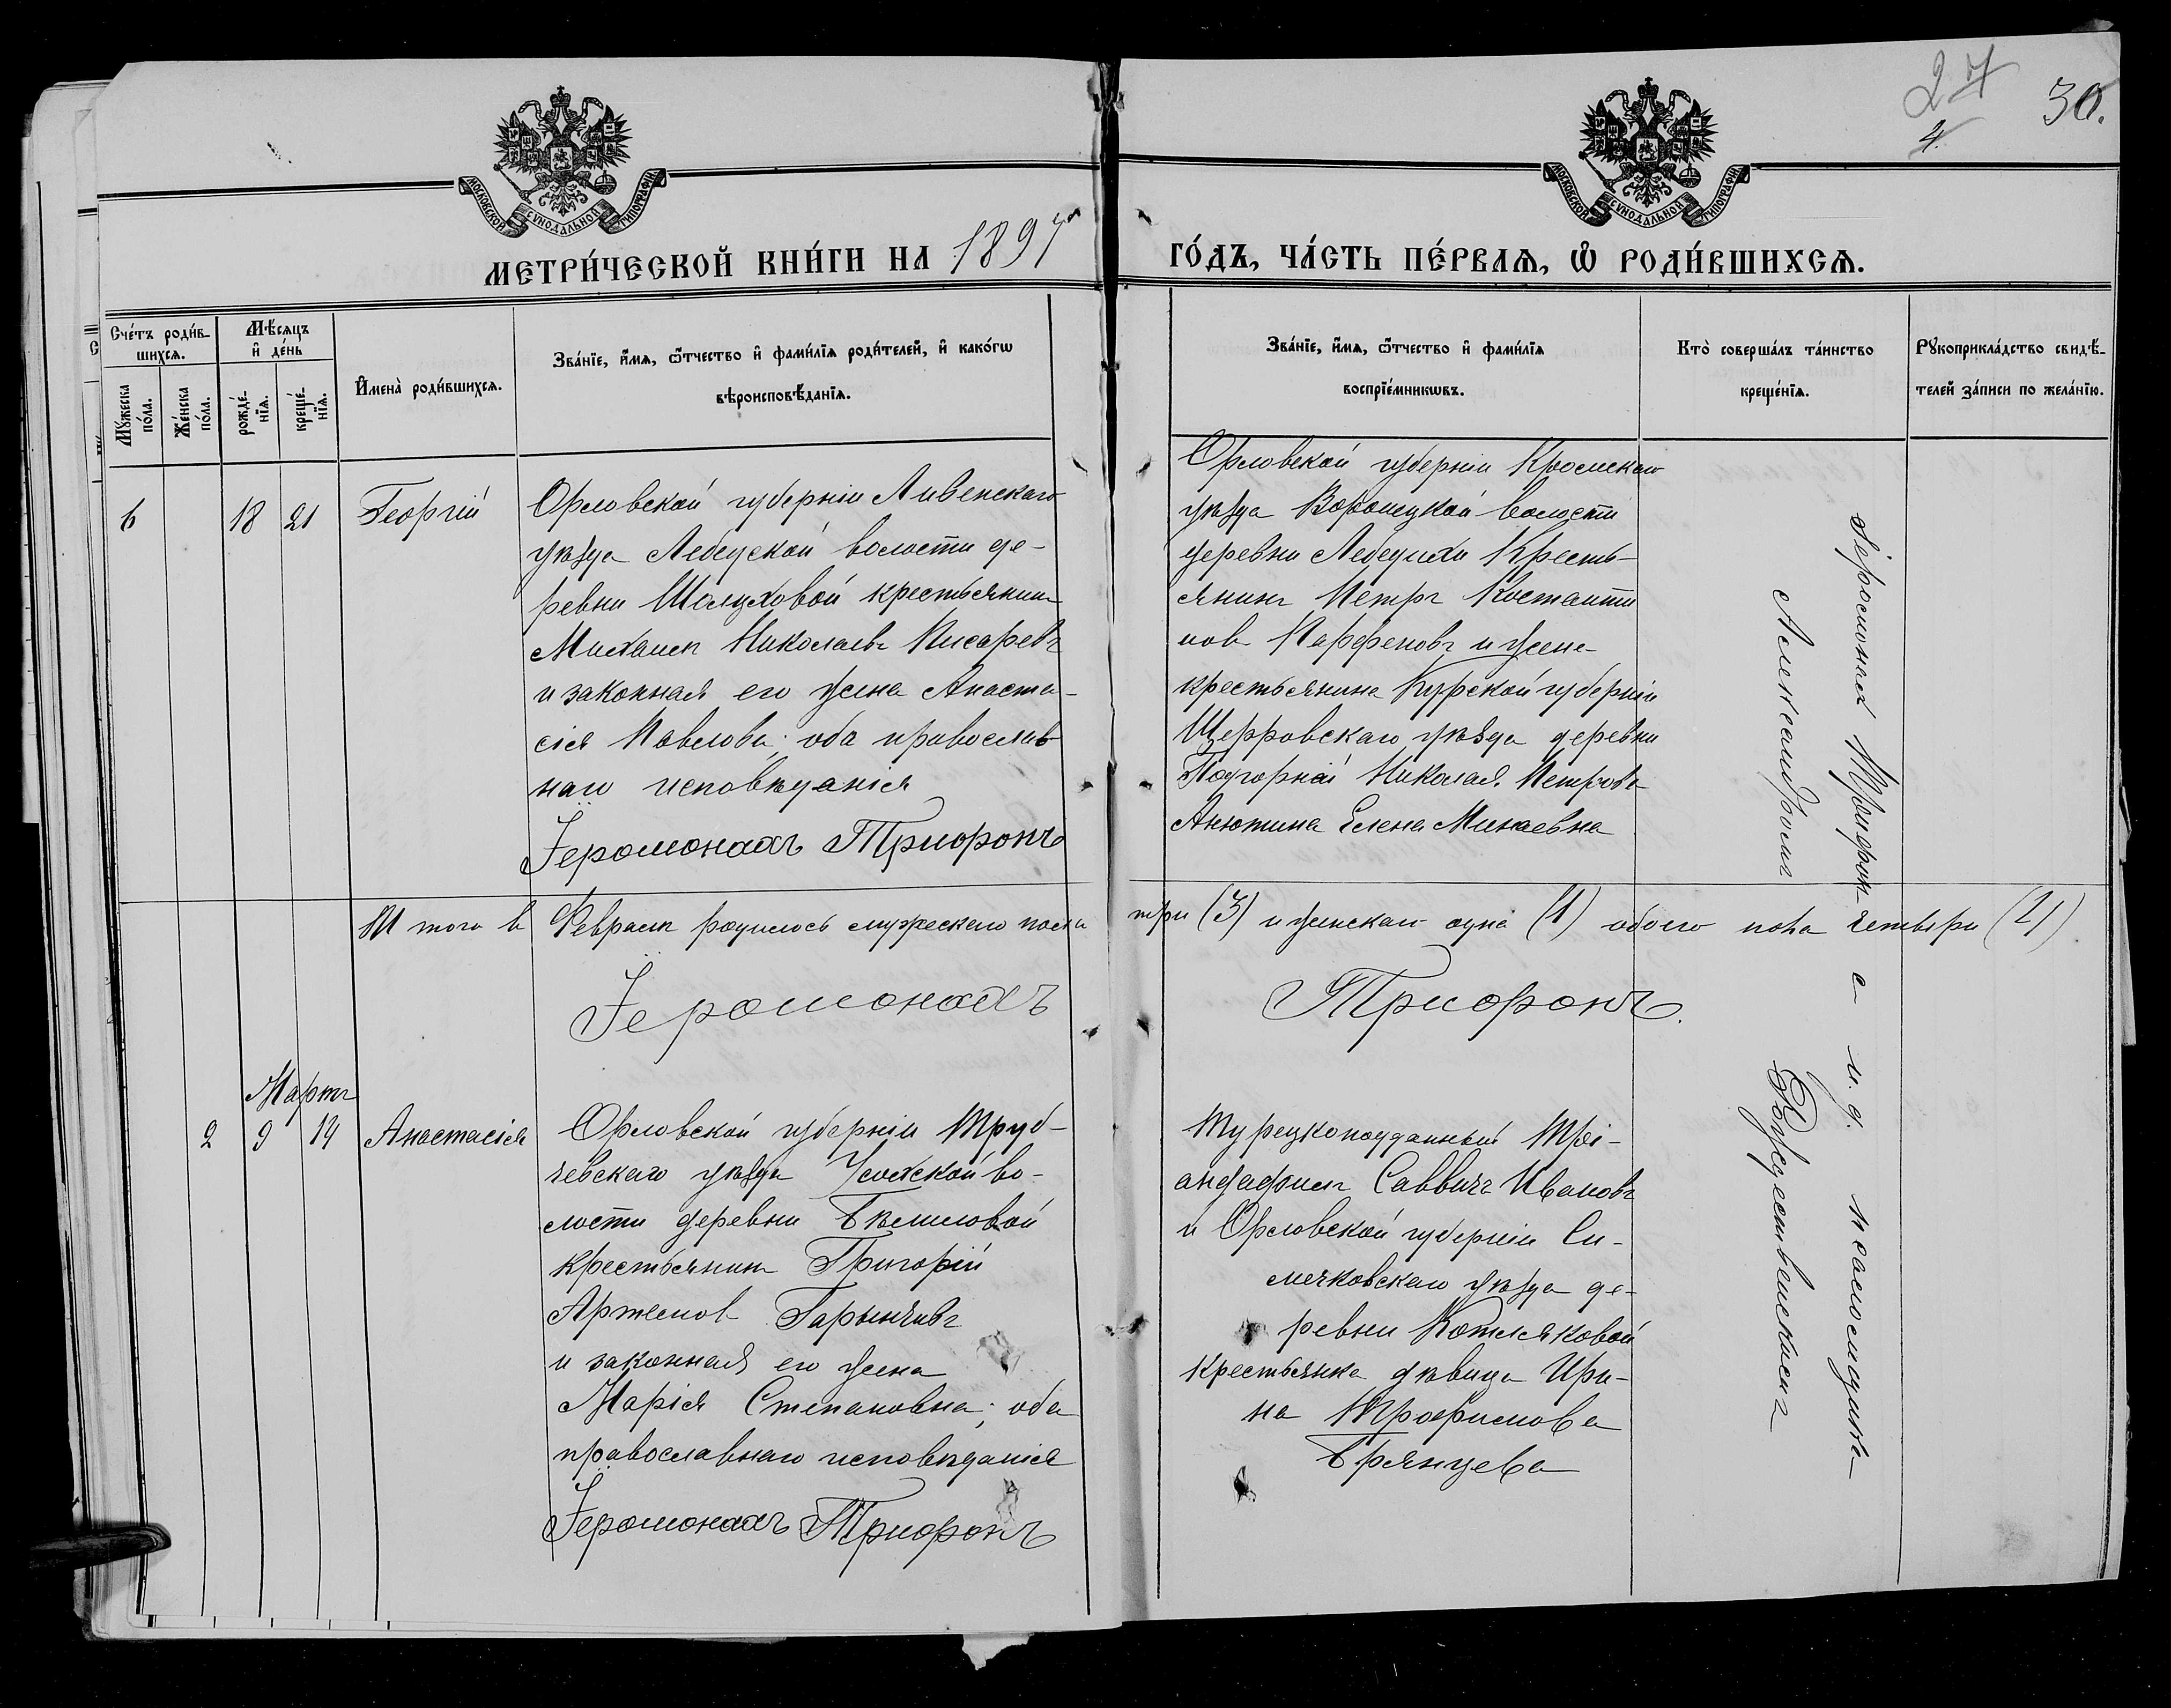 27
4.
30.
МОСКОВСКОЙ СѴНОДАЛЬНОЙ ТИПОГРАФІИ
МОСКОВСКОЙ СѴНОДАЛЬНОЙ ТИПОГРАФІИ
МЕТРИ́ЧЕСКОЙ КНИ́ГИ НА 1897
ГО́ДЪ, ЧА́СТЬ ПЕ́РВАѦ, Ѡ҆ РОДИ́ВШИХСѦ.
Сче́тъ роди́в-
шихсѧ.
Мꙋ́жеска
по́ла.
Же́нска
по́ла.
Мѣ́сѧцъ
и҆ де́нь
рожде́-
нїѧ.
креще́-
нїѧ.
И҆мена̀ роди́вшихсѧ.
Зва́нїе, и҆́мѧ, ѻ҆́тчество и҆ фами́лїѧ роди́телей, и҆ како́гѡ
вѣроисповѣ́данїѧ.
Зва́нїе, и҆́мѧ, ѻ҆́тчество и҆ фами́лїѧ
воспрїе́мникѡвъ.
Кто̀ соверша́лъ та́инство
креще́нїѧ.
Рꙋкоприкла́дство свидѣ́-
телей за́писи по жела́нїю.
6 18 21 Георгій
Орловской губерніи Ливенскаго
уѣзда Лебедской волости де-
ревни Шалуховой крестьянинъ
Михаилъ Николаевъ Писаревъ
и законная его жена Анаста-
сія Павлова; оба православ
наго исповѣданія
Іеромонахъ Трифонъ
Орловской губерніи Кромскаго
уѣзда волости
деревни Лебедихи Кресть-
янинъ Петръ Костанти
нов Парфеновъ и жена
крестьянина Курской губерніи
Щигровскаго уѣзда деревни
Подгорной Николая Петрова
Анютина Елена Минаевна
Іеромонахъ Трифонъ с и. д. псаломщика
Александромъ Рождественскимъ
И того в Февралѣ родилось мужескаго пола три (3) и женскаго одна (1) обоего пола четыри (4)
Іеромонахъ Трифонъ.
Мартъ
2 9 14 Анастасія
Орловской губерніи Труб-
чевскаго уѣзда Усохской во-
лости деревни
крестьянинъ Григорій
Артемов
и законная его жена
Марія Степановна; оба
православнаго исповѣданія
Іеромонахъ Трифонъ
Турецкоподданный Трі-
андафилъ Саввичъ Ивановъ
и Орловской губерніи
уѣзда де-
ревни Котляковой
крестьянка дѣвица Ири-
на Трофимова
Брянцева